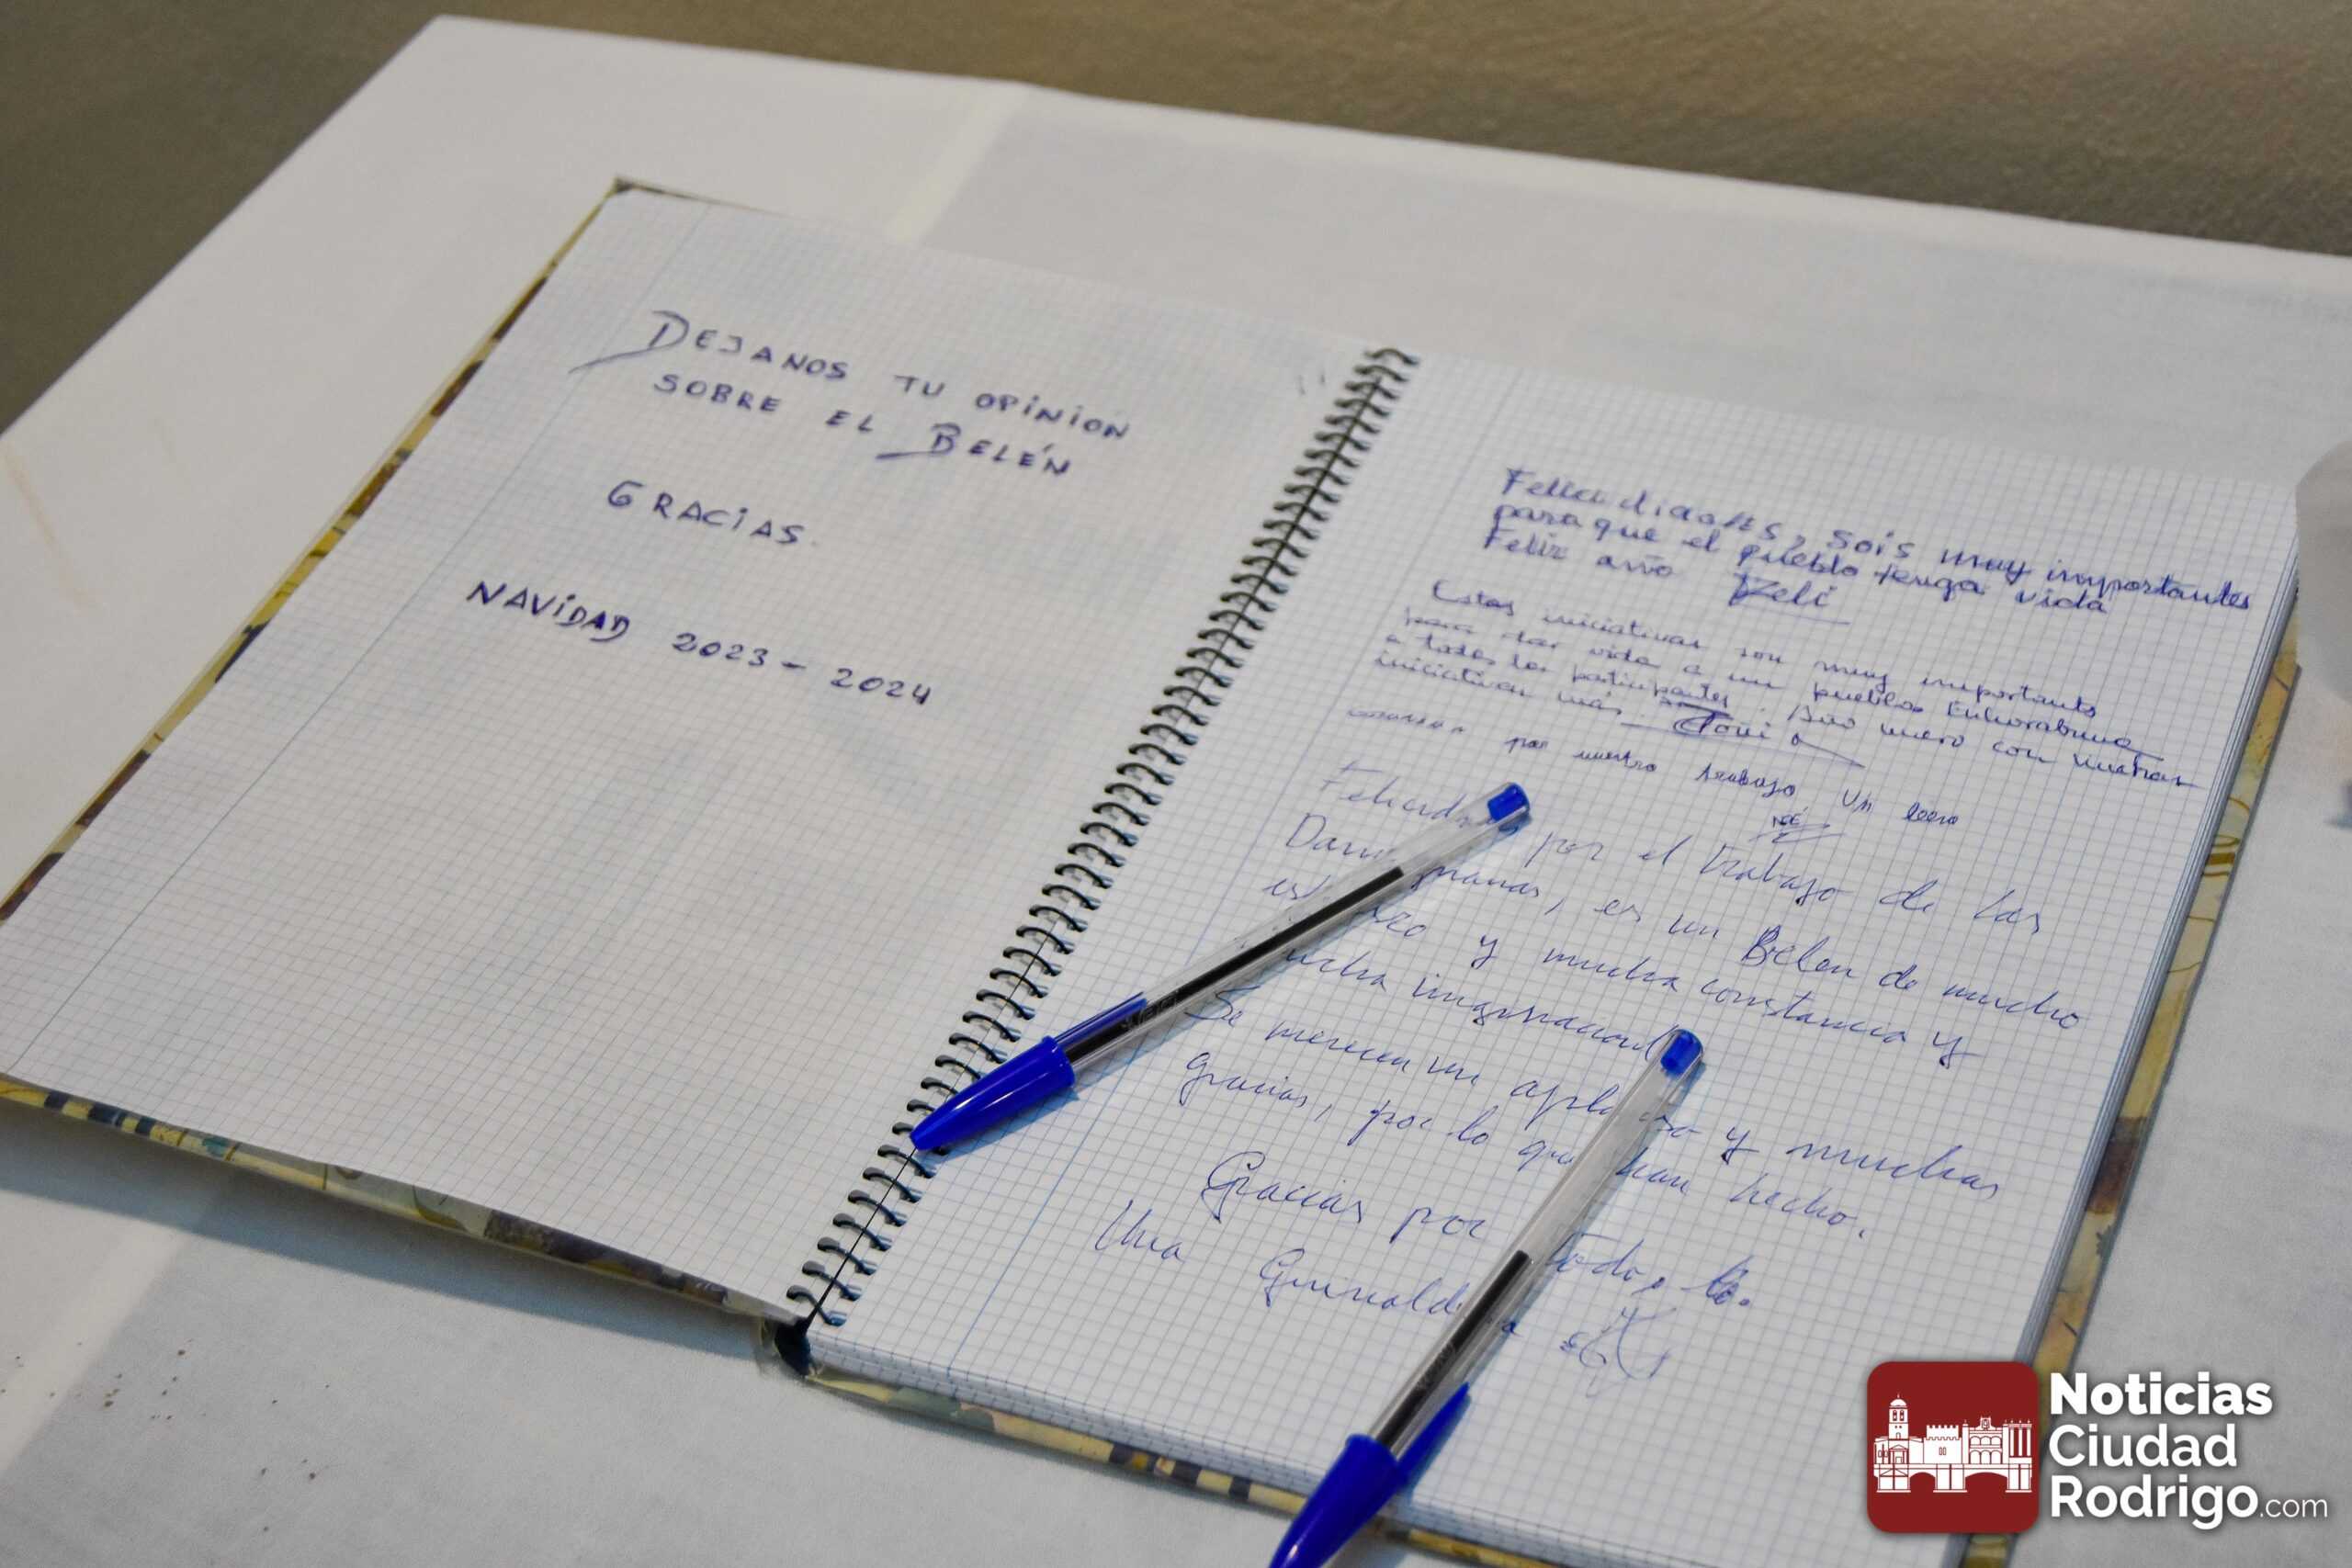 DEJANOS TU OPINION
SOBRE EL BELÉN
GRACIAS.
NAVIDAD 2023-2024
Felicidades, sois muy importantes
para que el pueblo tenga vida
Feliz año Veli
Estas iniciativas son muy importants
para dar vida a un pueblo. Enhorabuena
a todos los participantes. Año nuevo con nuestras
iniciativas más. Toñi
por nuestro trabajo, Un
Felicid por el trabajo de las
manas, es un Belen de mucho
y mucha constancia y
imaginacion
Se merecen un apla y muchas
gracias, por lo que han hecho.
Gracias por todo,
Una Guinald
Noticias
Ciudad
Rodrigo.com